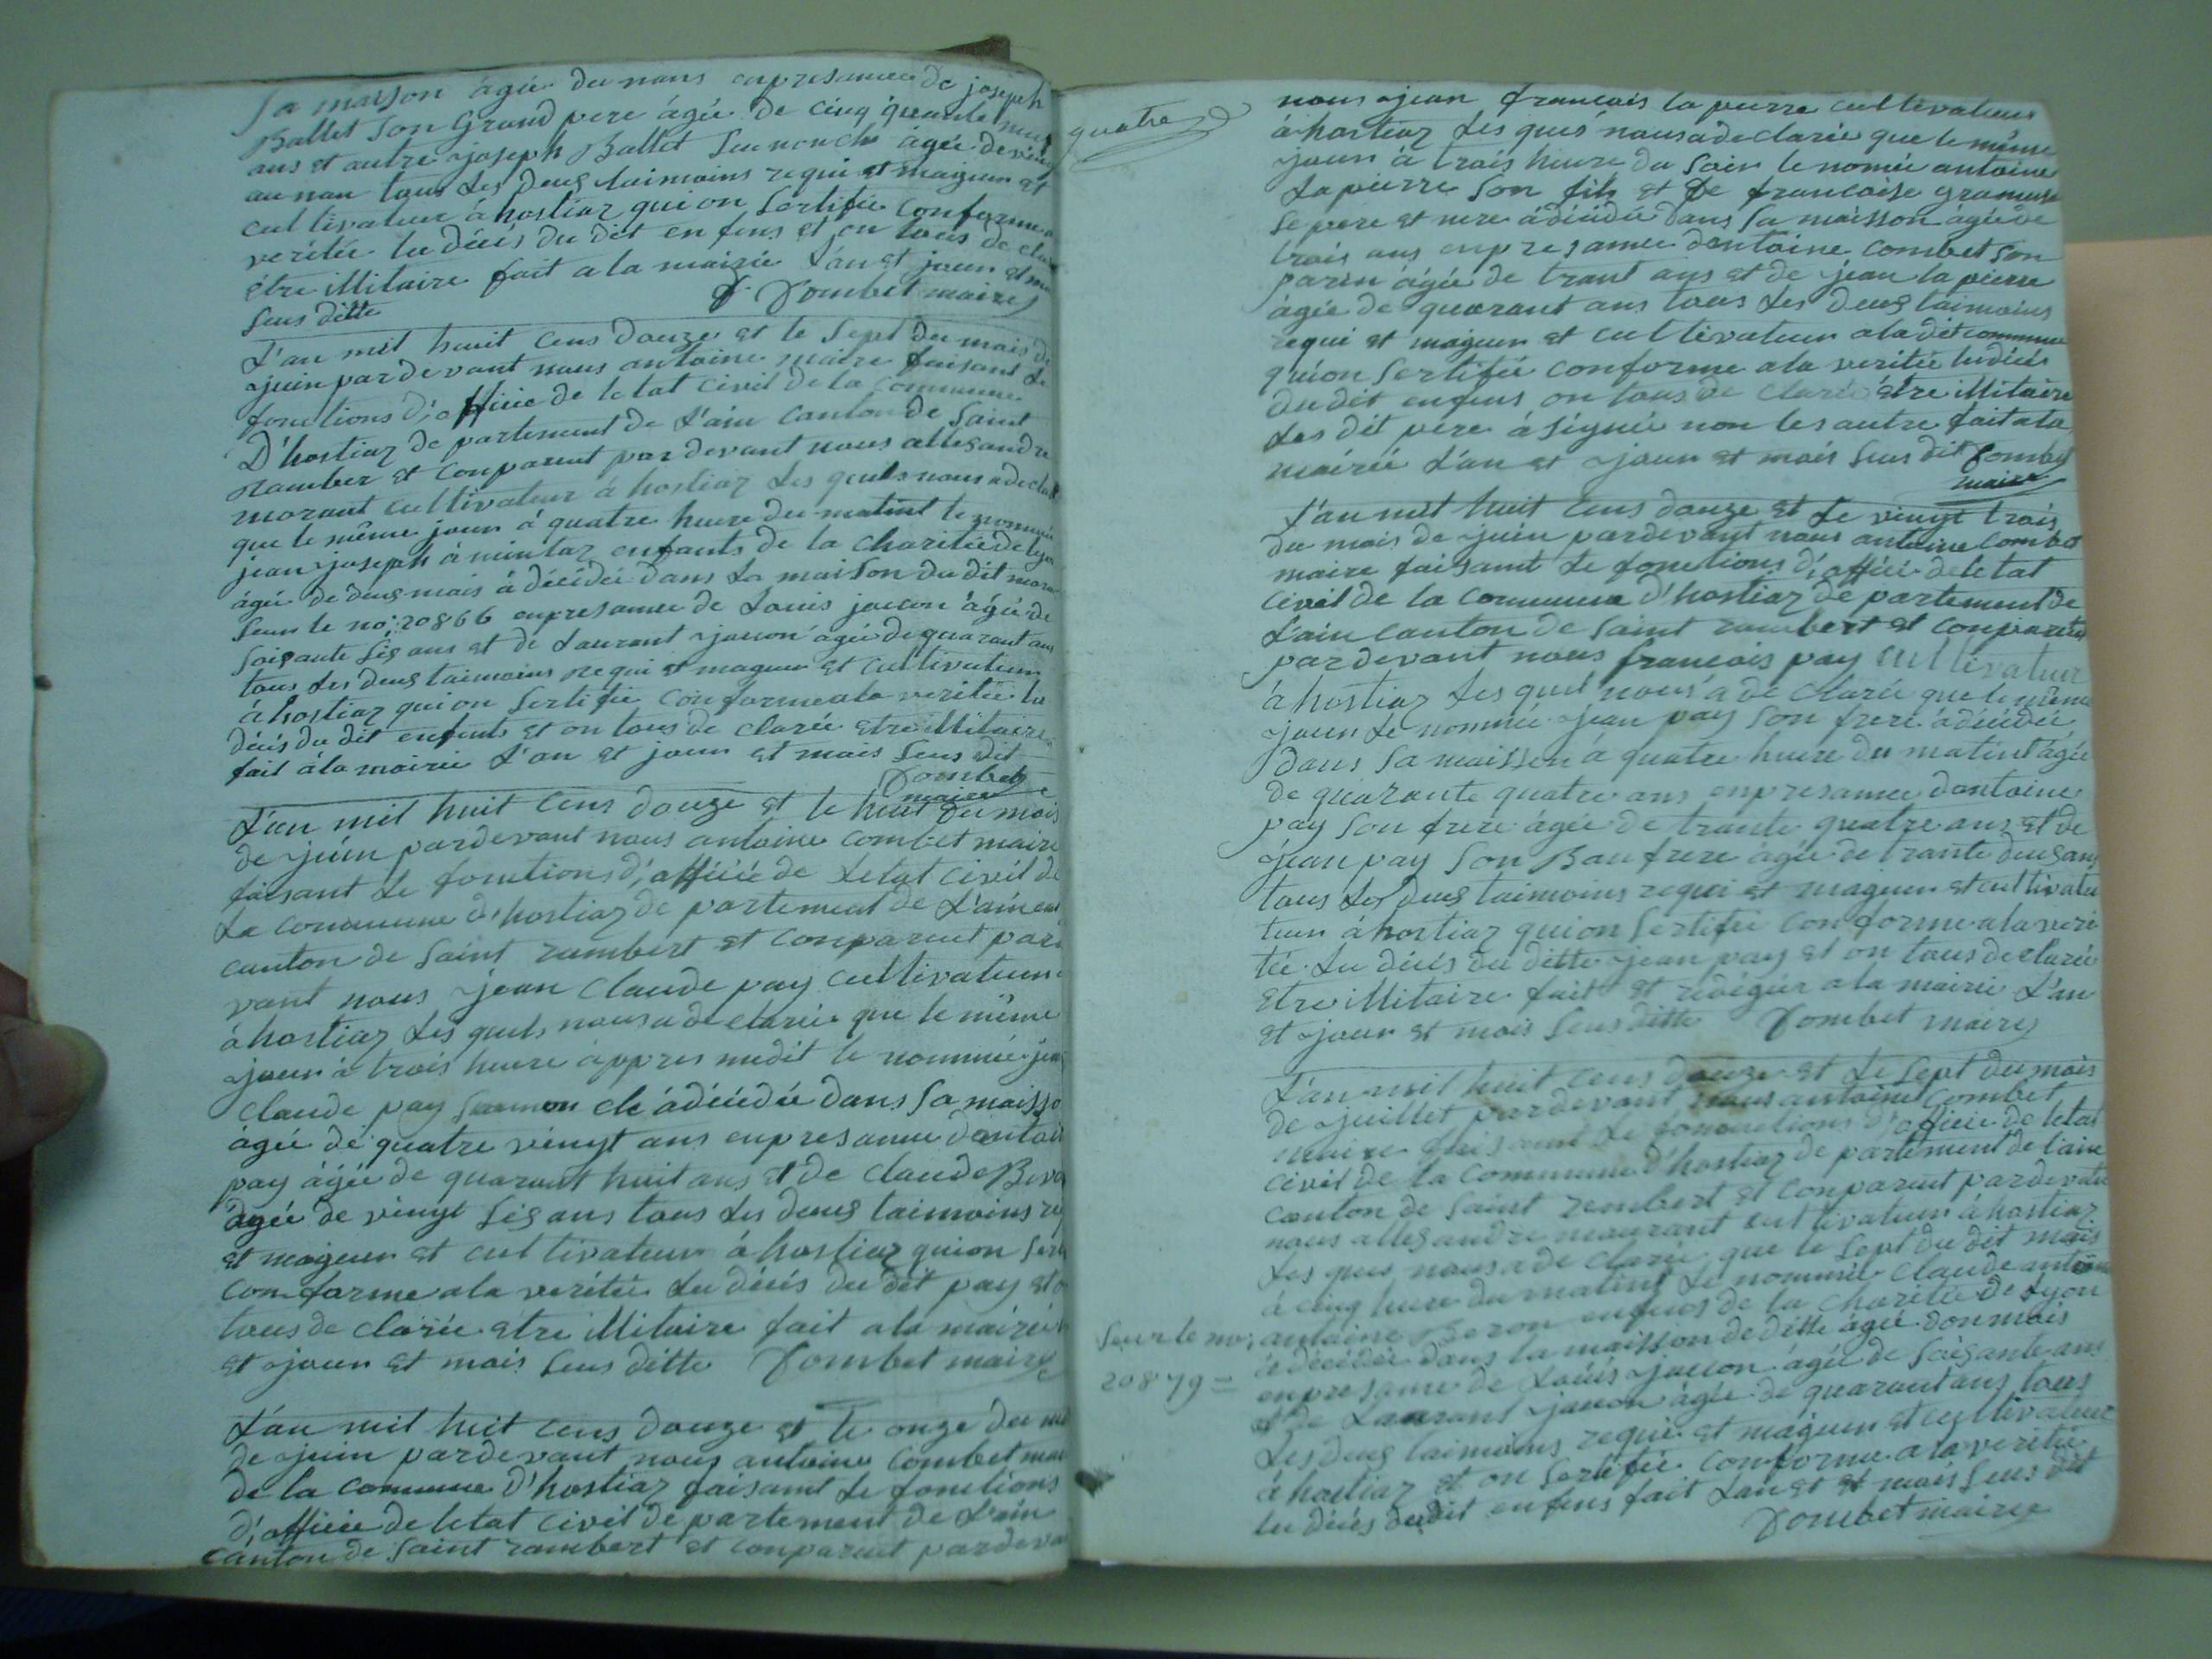 Sa maison âgée du nans enpresancee de joseph
Ballet Son Grand pere âgée de cinq quante neuf
ans et autre joseph Ballet Seu noncle âgée de vint
au nan tous Les deus taimoins requi et mageur et
cultivateur à hostiaz qui on Sertifiée Conforme a
veritée lu décés du dit enfens et on tous de cla
étre illitaire fait a la mairie L'an et jour et mois
Seus ditte Combet maire
L'an mil huit Cens douze et le Sept du mais de
juin par de vant nous antoine maire faisant Le
fonctions d'officie de letat civil de la Commune
D'hostiaz de partement de L'ain Canton de Saint
Rambert et Conparent par devant nous allexandre
morant cultivateur à hostiaz Les quels nous a de cla
que le même jour à quatre heure du matint le nommée
jean joseph à mintaz enfants de la Charitée de lyon
âgée de deus mais à décédée dans La maison du dit moran
Seur le no: 20866 enpresamce de Louis joucon âgée de
Soisante Sis ans et de Laurant joucon âgée de quarant ans
tous Les deus taimoins requi et mageur et cultivateur
à hostiaz qui on Sertifie Conforme ala veritée lu
décis du dit enfents et on tous de clarée étre illitaire
fait à la mairie L'an et jour et mais Seus dit
Combet
maire
L'an mil huit Cens douze et le huit du mois
de juin pardevant nous antoine Combet maire
faisant Le fonctions d'officié de Letat civil de
La Commune d'hostiaz de partement de L'ain
canton de Saint rambert et Conparent parde
vant nous jean Claude pay Cultivateur
à hostiaz Les quels nous a de clarée que le même
jour à trois heure appres medit le nommée jean
Claude pay Seu non cle à décédée dans Sa maisso
âgée de quatre vingt ans enpresance dantoin
pay âgée de quarant huit ans et de Claude
âgée de vingt Sis ans tous Les deus taimoins re
et mageur et cultivateur à hostiaz qui on Sert
Conforme ala veritée Lu décis du dit pay et o
tous de clarée étre illitaire fait ala mairie
et jour et mais Seus ditte Combet maire
L'an mil huit cens douze et le onze du m
de juin pardevant nous antoine Combet mai
de la Comune d'hostiaz faisant Le fonctions
d'officie de letat civil de partement de L'ain
Canton de Saint rambert et Conparent pardeva
quatre
nous jean francois la pierre cultivateur
à hostiaz Les quis nous a de clarée que le même
jour à trais heure du Soir le nomée antoine
Lapierre Son fils et de francoise
Se pere et mere à décédée dans Sa maisson âgée de
trais ans enpresamce dantoine Combet Son
parin âgée de trant ans et de jean la pierre
âgée de quarant ans tous Les deus taimoins
requi et mageur et cultivateur ala dit commune
qui on Sertifiée conforme ala veritée lu décés
du dit enfens on tous de clarée étre illitaire
Les dit pere à Signée non les autre fait ala
mairée L'an et jour et mais Seus dit Combet
maire
L'an mil huit Cens douze et Le vingt trois
du mais de juin pardevant nous antoine Combet
maire faisant Le fonctions d'officié de letat
civil de la Commune d'hostiaz de partement de
L'ain Canton de Saint rambert et Conparent
pardevant nous francois pay cultivateur
à hostiaz Les quel nous a de clarée que le même
jour Le nommée jean pay Son frere à décidée
dans Sa maisson à quatre heure du matint âgée
de quarante quatre ans enpresamce dantoine
pay Son frere âgée de trante quatre ans et de
jean pay Son Bau frere âgée de trante deus ans
tous Les deus taimoins requi et mageur et cultiva
teur à hostiaz qui on Sertifie Conforme ala veri
tée Lu décis du ditte jean pay et on tous de clarée
étre illitaire fait et redigée ala mairie L'an
et jour et mois Seus ditte Combet maire
L'an mil huit cens douze et Le Sept du mais
de juillet pardevant nous antoine Combet
maire faisant Le fonnctions d'officie de letat
civil de la Commune d'hostiaz de partement de l'ain
canton de Saint rembert et Conparent pardevant
nous allexandre mourant cultivateur à hostiaz
Les quis nous a de clarée que le Sept du dit mais
à cinq heure du matint Le nommée Claude antoine
Seur le no: antoine enfens de la Charitée de Lyon
à décédée dans la maisson de ditte âgée don mois
20879 = enpresamce de Louis joucon âgée de Soisante ans
et de Laurant joucon âgée de quarant ans tous
Les deus taimoins requi et mageur et cultivateur
à hostiaz et on Sertifiée Conforme a la veritée
lu décés du dit enfens fait Lan et et mais Seus dit
Combet maire